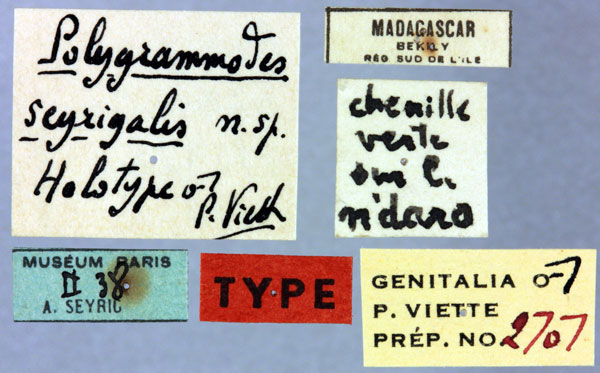 Polygrammodes
seyrigalis n. sp.
Holotype ♂
P. Viette
MADAGASCAR
BEKILY
REG SUD DE L'ILE
chenille
verte
sur le
n'daro
MUSÉUM PARIS
II 38
A. SEYRIG
TYPE
GENITALIA ♂
P. VIETTE
PRÉP. NO. 2707